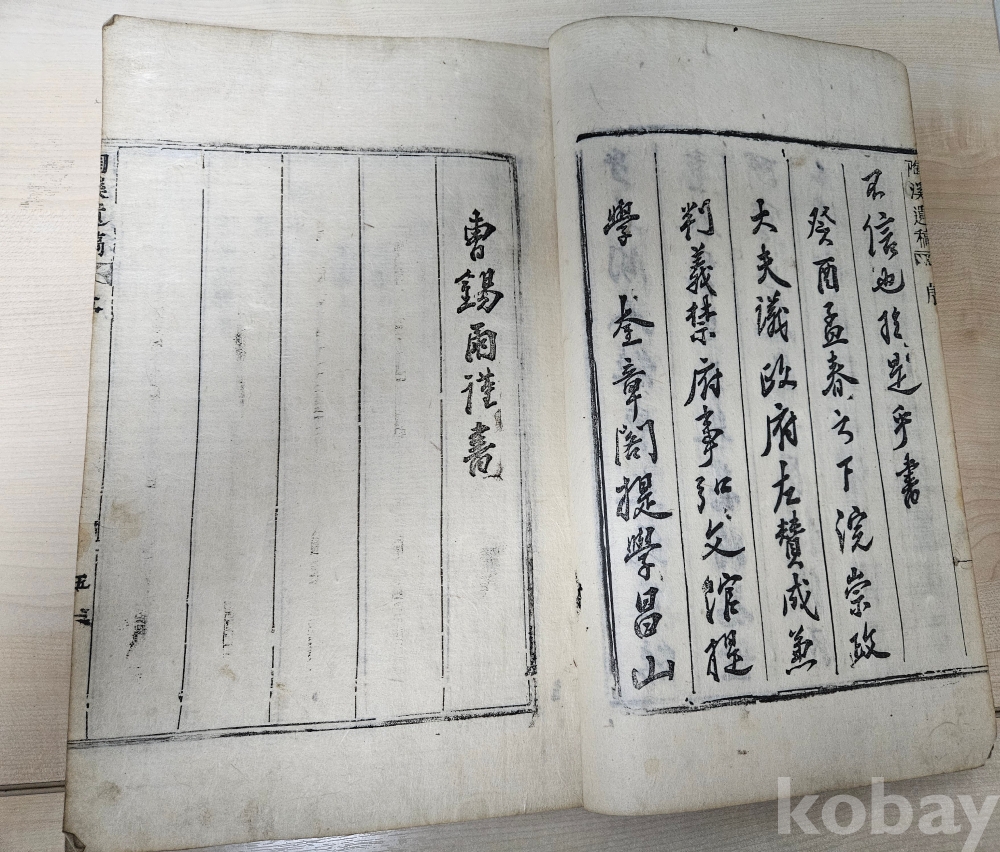 陶溪遺稿 序
不信也於是乎書
癸酉孟春之下浣崇政
大夫議政府左贊成兼
判義禁府事弘文館提
學 奎章閣提學昌山
曹錫雨謹書
陶溪遺稿
五
kobay